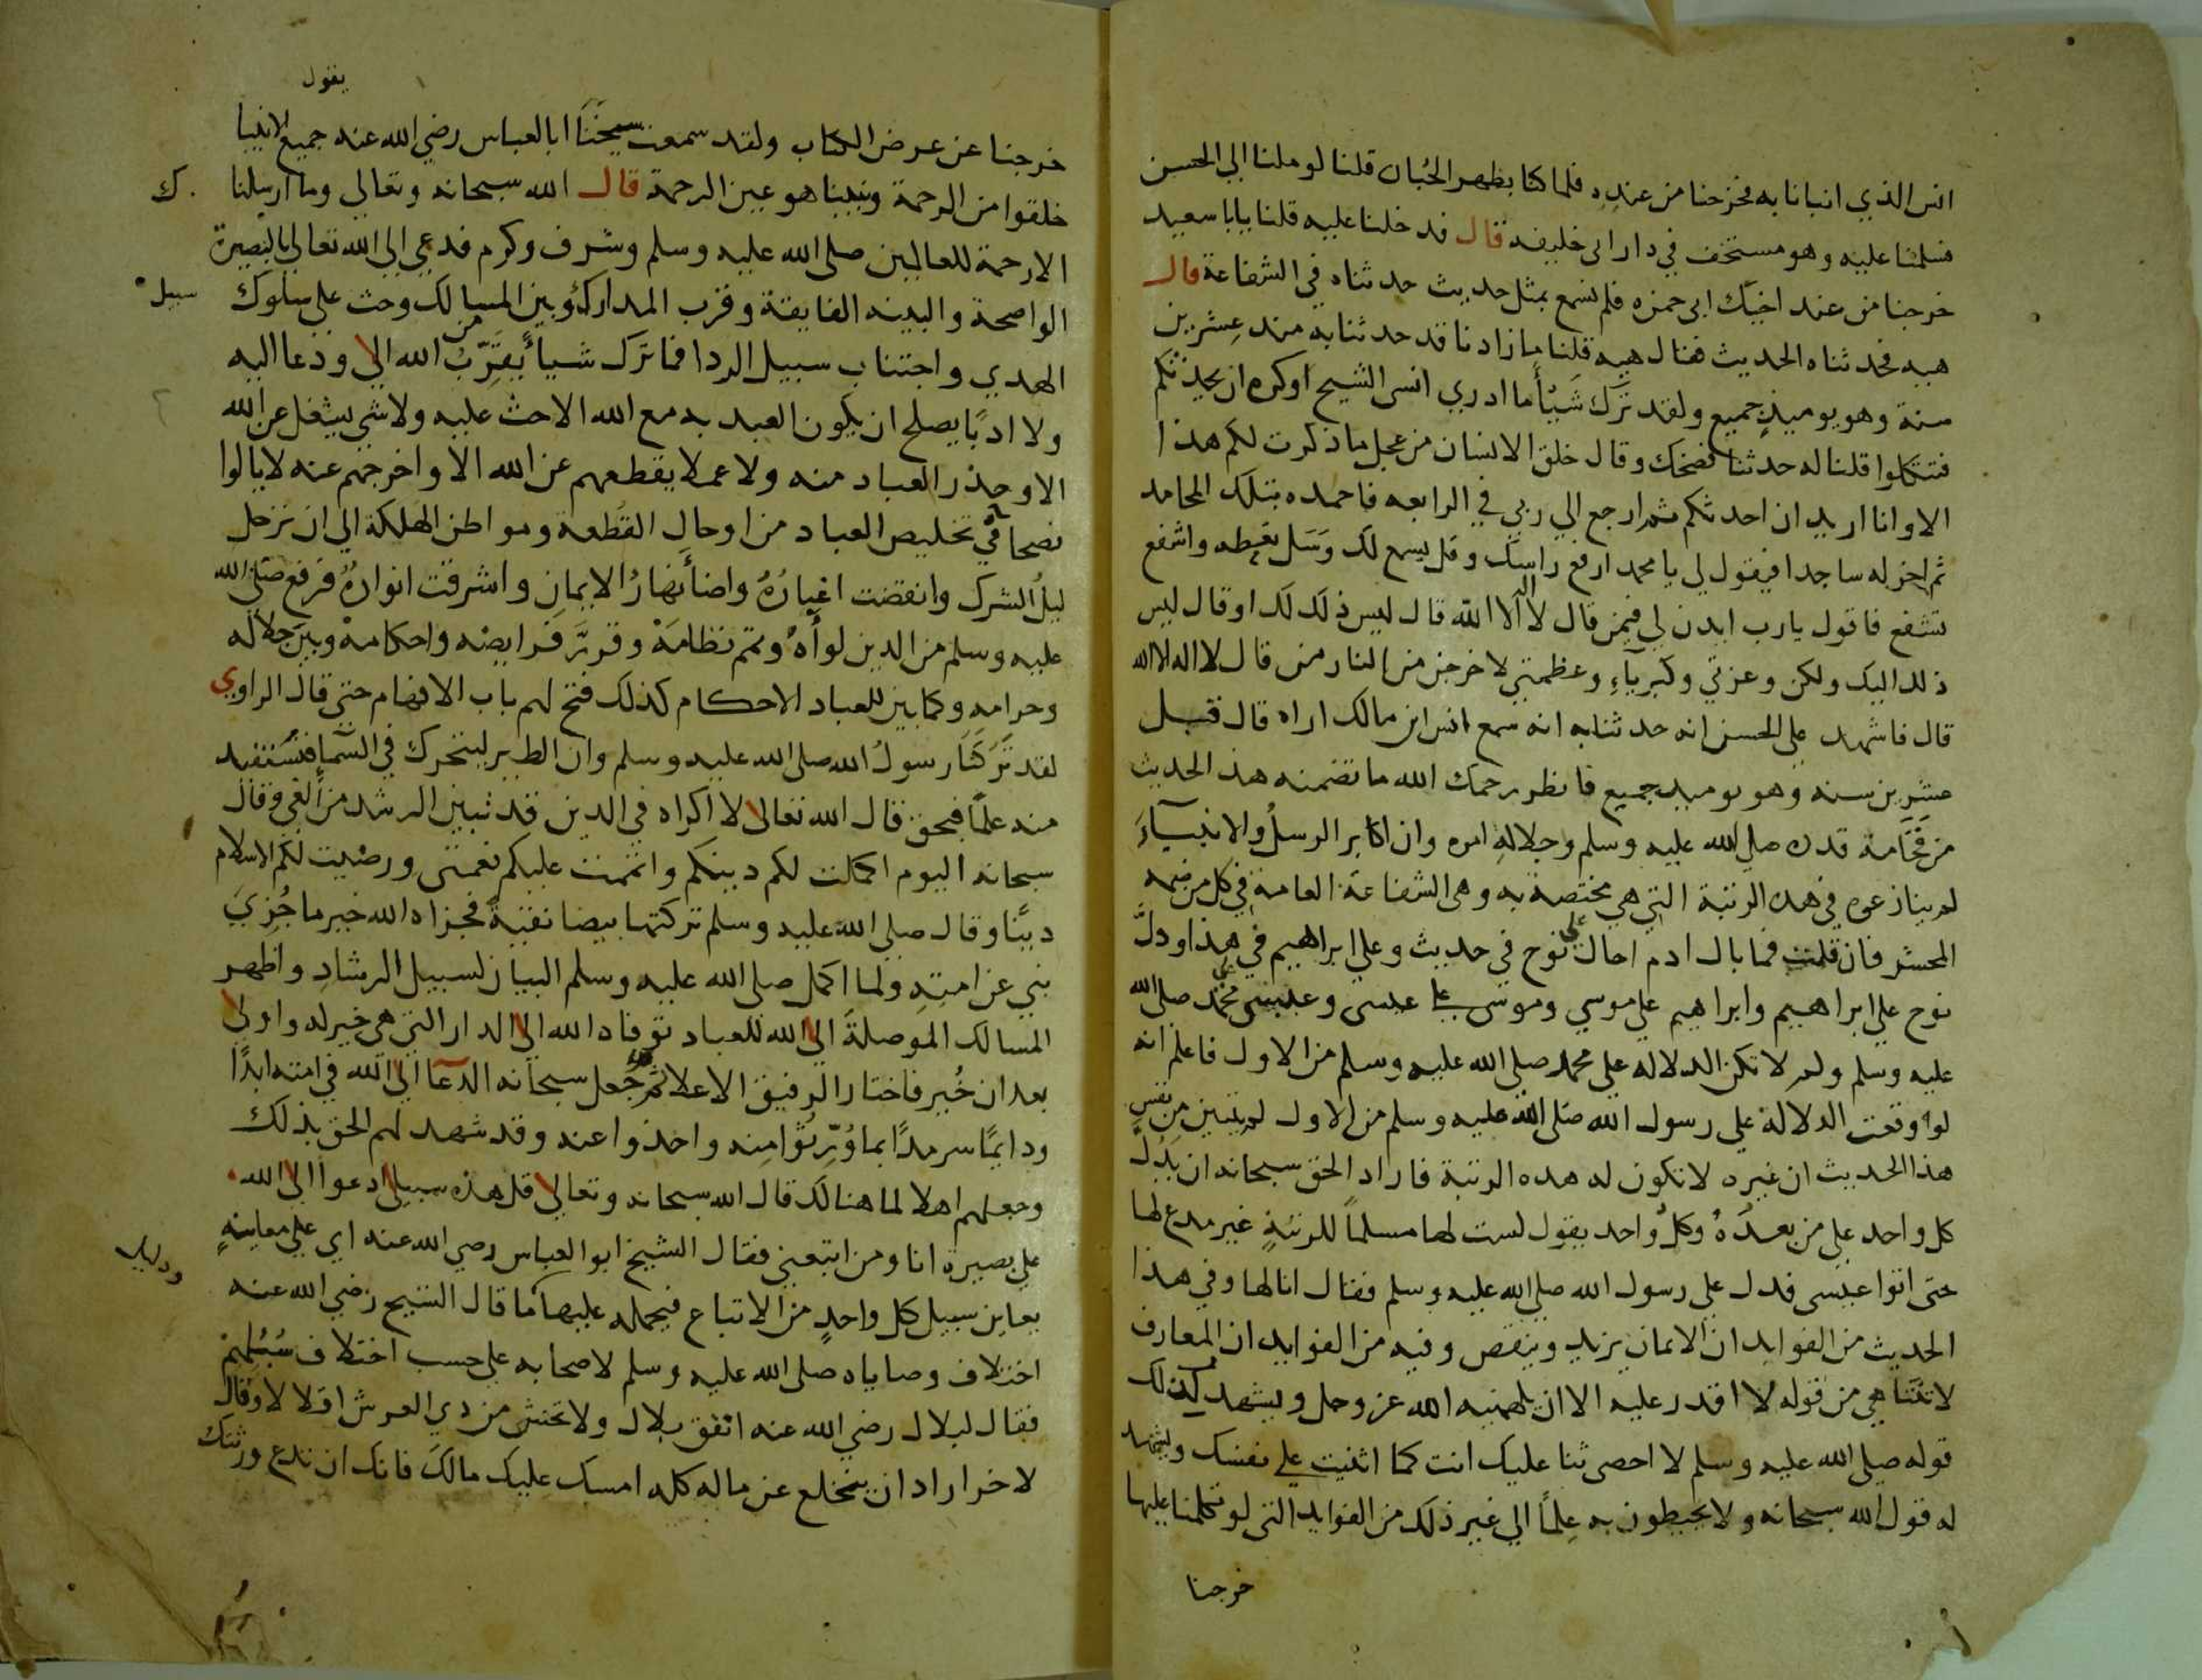 انس الذي انبانا به فخرجنا من عنده فلما كنا بظهر الجُبان قلنا لو ملنا الي الحسن
فسلمنا عليه وهو مستخف في دار ابي خليفه قال فدخلنا عليه قلنا يابا سعيد
خرجنا من عند اخيك ابي حمزه فلم نسمع بمثل حديث حدثناه في الشفاعة قال
هيه فحدثناه الحديث فقال هيه قلنا ما زادنا قد حدثنا به منذ عشرين
سنة وهو يوميذٍ جميع ولقد ترك شيأً ما ادري انسي الشيخ او كره ان يحدثكم
فتتكلوا قلنا له حدثنا فضحك وقال خلق الانسان من عجل ما ذكرت لكم هذا
الا وانا اريد ان احدثكم ثم ارجع الي ربي في الرابعه فاحمده بتلك المحامد
ثم اخر له ساجدا فيقول لي يا محمد ارفع راسك وقل يسمع لك وسَل تعطه واشفع
تشفع فاقول يارب ايذن لي فيمن قال لا اله الا الله قال ليس ذلك لك او قال ليس
ذلك اليك ولكن وعزتي وكبرياءِ وعظمتي لاخرجن من النار من قال لا اله الا الله
قال فاشهد علي الحسن انه حدثنا به انه سمع انس ابن مالك اراه قال قبل
عشرين سنه وهو يوميد جميع فانظر رحمك الله ما تضمنه هذ الحديث
من فَخَامة قدره صلي الله عليه وسلم وجلالهِ امره وان اكابر الرسلُ والانبيآءَ
لم ينازعوه في هده الرتبة التي هي مختصة به وهي الشفاعة العامة في كل من ضمه
المحشر فان قلت فما بال ادم احال علي نوح في حديث وعلي ابراهيم في هذا ودلَّ
نوح علي ابراهيم وابراهيم علي موسي وموسي علي عيسى وعيسى علي محمد صلي الله
عليه وسلم ولم لا تكن الدلاله علي محمد صلي الله عليه وسلم من الاول فاعلم انه
لو وقعت الدلالة علي رسول الله صَلي الله عليه وسلم من الاول لم يتبين مِن نفسِ
هذا الحديث ان غيره لا تكون له هده الرتبة فاراد الحق سبحانه ان يَدُلَّ
كل واحد علي من بعدَهُ وكلُ واحد يقول لست لها مسلماً للرتبةِ غير مدع لها
حتى اتوا عيسى فدل علي رسول الله صلي الله عليه وسلم فقال انا لها وفي هذا
الحديث من الفوايد ان الايمان يزيد وينقص وفيه من الفوايد ان المعارف
لا تتناهي من قوله لا اقدر عليه الا ان يلهمنيه الله عز وجل ويشهد لذلك
قوله صلي الله عليه وسلم لا احصي ثنا عليك انت كما اثنيت علي نفسك ويشهد
له قول الله سبحانه ولا يحيطون به عِلماً الي غير ذلك من الفوايد التي لو تكلمنا عليها
خرجنا
يقول
خرجنا عن عرض الكتاب ولقد سمعت شيخَنَا ابا العباس رضي الله عنه جميع الانبيا
خلقوا من الرحمة ونبينا هو عين الرحمة قال الله سبحانه وتعالي وما ارسلنا ك
الا رحمة للعالمين صلى الله عليه وسلم وشرف وكرم فدعي الي الله تعالي بالبصيرة
الواضحة والبينه الفايقة وقرب المدارك وبين المسالك وحث علي سلوك سبيل
الهدي واجتناب سبيل الردا فما ترك شيأً يُقَرِّبُ من الله الا ودعا اليه
ولا ادبًا يصلح ان يكون العبد به مع الله الا حث عليه ولا شي يشغل عن الله
الا وحذر العباد منه ولا عملا يقطعهم عن الله الا واخرجهم عنه لا يالوا
نصحا في تخليص العباد من اوحال القُطعة ومواطن الهلكة الي ان ترحل
ليلُ الشرك وانقضت اغيارُهُ واضأ نهارُ الايمانِ واشرقت انوارهُ فرفع صَلي الله
عليه وسلم من الدين لوأهُ وتمم نظامَهُ وقرَّر فرايضه واحكامهُ وبين حلاله
وحرامه وكما بين للعباد الاحكام كذلك فتح لهم باب الافهام حتي قال الراوي
لقد تركَنا رسولُ الله صلي الله عليه وسلم وان الطير ليتحرك في السّما فنستفيد
منه علمًا فبحق قال الله تعالى لا اكراه في الدين قد تبين الرشد من الغي وقال
سبحانه اليوم اكملت لكم دينكم واتممت عليكم نعمتى ورضيت لكم الاسلام
دينًا وقال صلي الله عليه وسلم تركتها بيضا نقيةً فجزاه الله خير ما جُزِيَ
نبي عن امتِهِ ولما اكمل صلي الله عليه وسلم البيان لسبيل الرشادِ واظهر
المسالك الموصلةَ الي الله للعباد توفاه الله الي الدار التي هي خير له واولي
بعد ان خُير فاختار الرفيق الاعلا ثم جَعل سبحانه الدعا الي الله في امته ابدًا
ودايمًا سرمدًا بما وُرِّثوا منه واخذوا عنه وقد شهد لهم الحق بذلك
وجعلهم اهلا لما هنالك قال الله سبحانه وتعالي قل هذه سبيلي ادعوا الي الله
علي بصيرة انا ومن اتبعني فقال الشيخ ابو العباس رضي الله عنه اي علي معاينهٍ ودليل
يعاين سبيل كل واحدٍ من الاتباع فيحمله عليها كما قال الشيخ رضي الله عنه
اختلاف وصاياه صلي الله عليه وسلم لاصحابه علي حسب اختلاف سُبُلِهم
فقال لبلال رضي الله عنه انفق بلال ولا تخش من ذي العرش اقلالا وقال
لاخر اراد ان ينخلع عن ماله كله امسك عليك مالكَ فانك ان تدع ورثتك